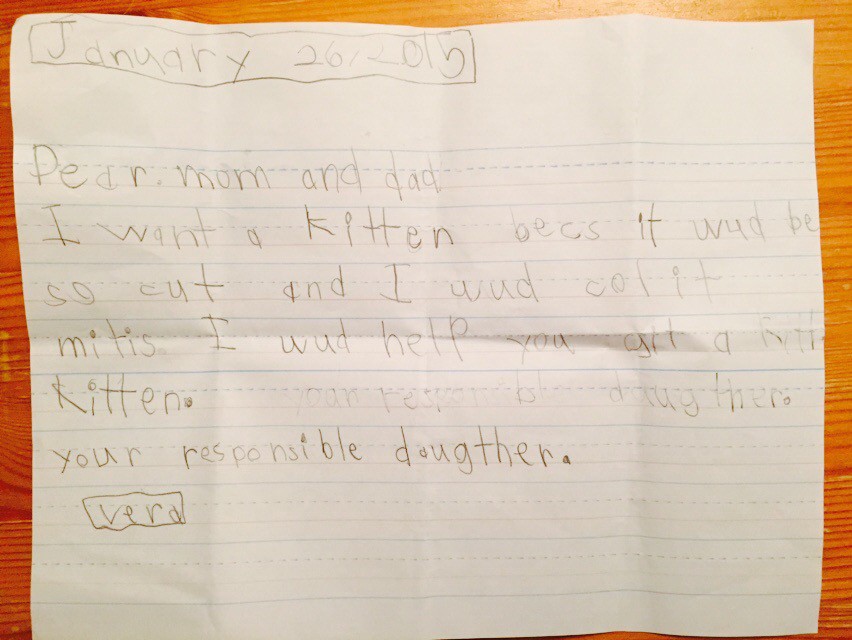 January 26/2015
Dear mom and dad
I want a kitten becs it wud be
so cut and I wud col it
mitis I wud help you git a
kitten. responsible daugther.
your responsible daugther.
vera